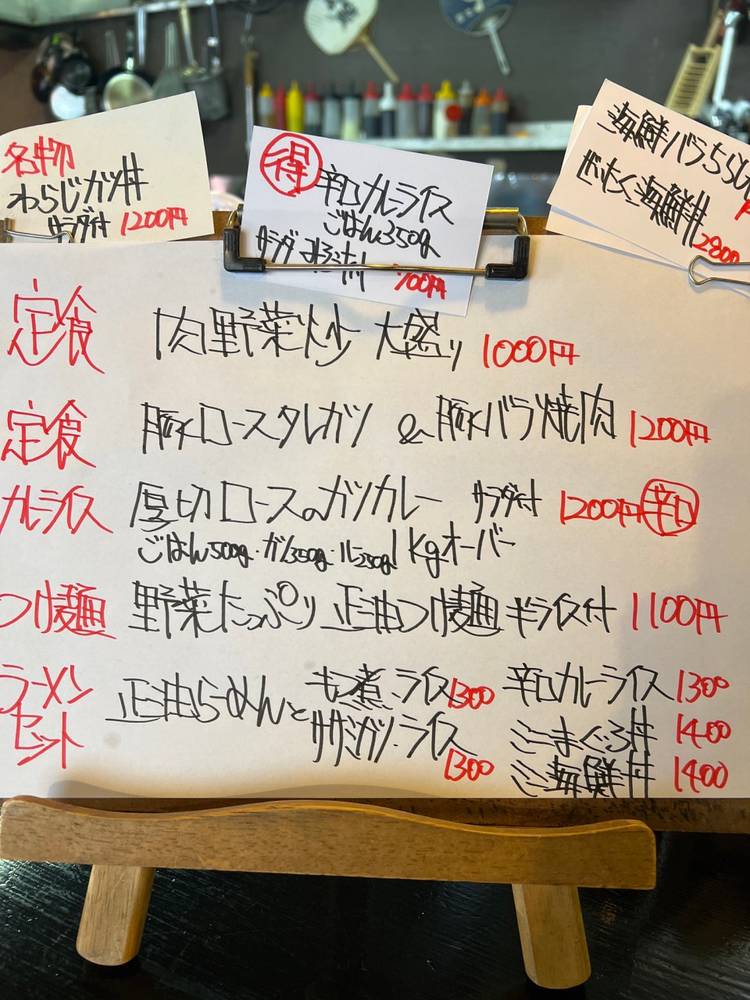 名物
わらじカツ丼
サラダ付 1200円
得 辛口カレーライス
ごはん350g
サラダ みそ汁付
700円
海鮮バラちらし
ぜいたく海鮮丼
2800
定食 肉野菜炒め 大盛り 1000円
定食 豚ロースタレカツ & 豚バラ焼肉 1200円
カレーライス 厚切ロースのカツカレー サラダ付 1200円 辛口
ごはん500g・カツ350g・ルー250g 1kgオーバー
つけ麺 野菜たっぷり 正油つけ麺 半ライス付 1100円
ラーメンセット 正油らぁめんと
もつ煮・ライス 1300
ササミカツ・ライス 1300
辛口カレーライス 1300
ミニまぐろ丼 1400
ミニ海鮮丼 1400